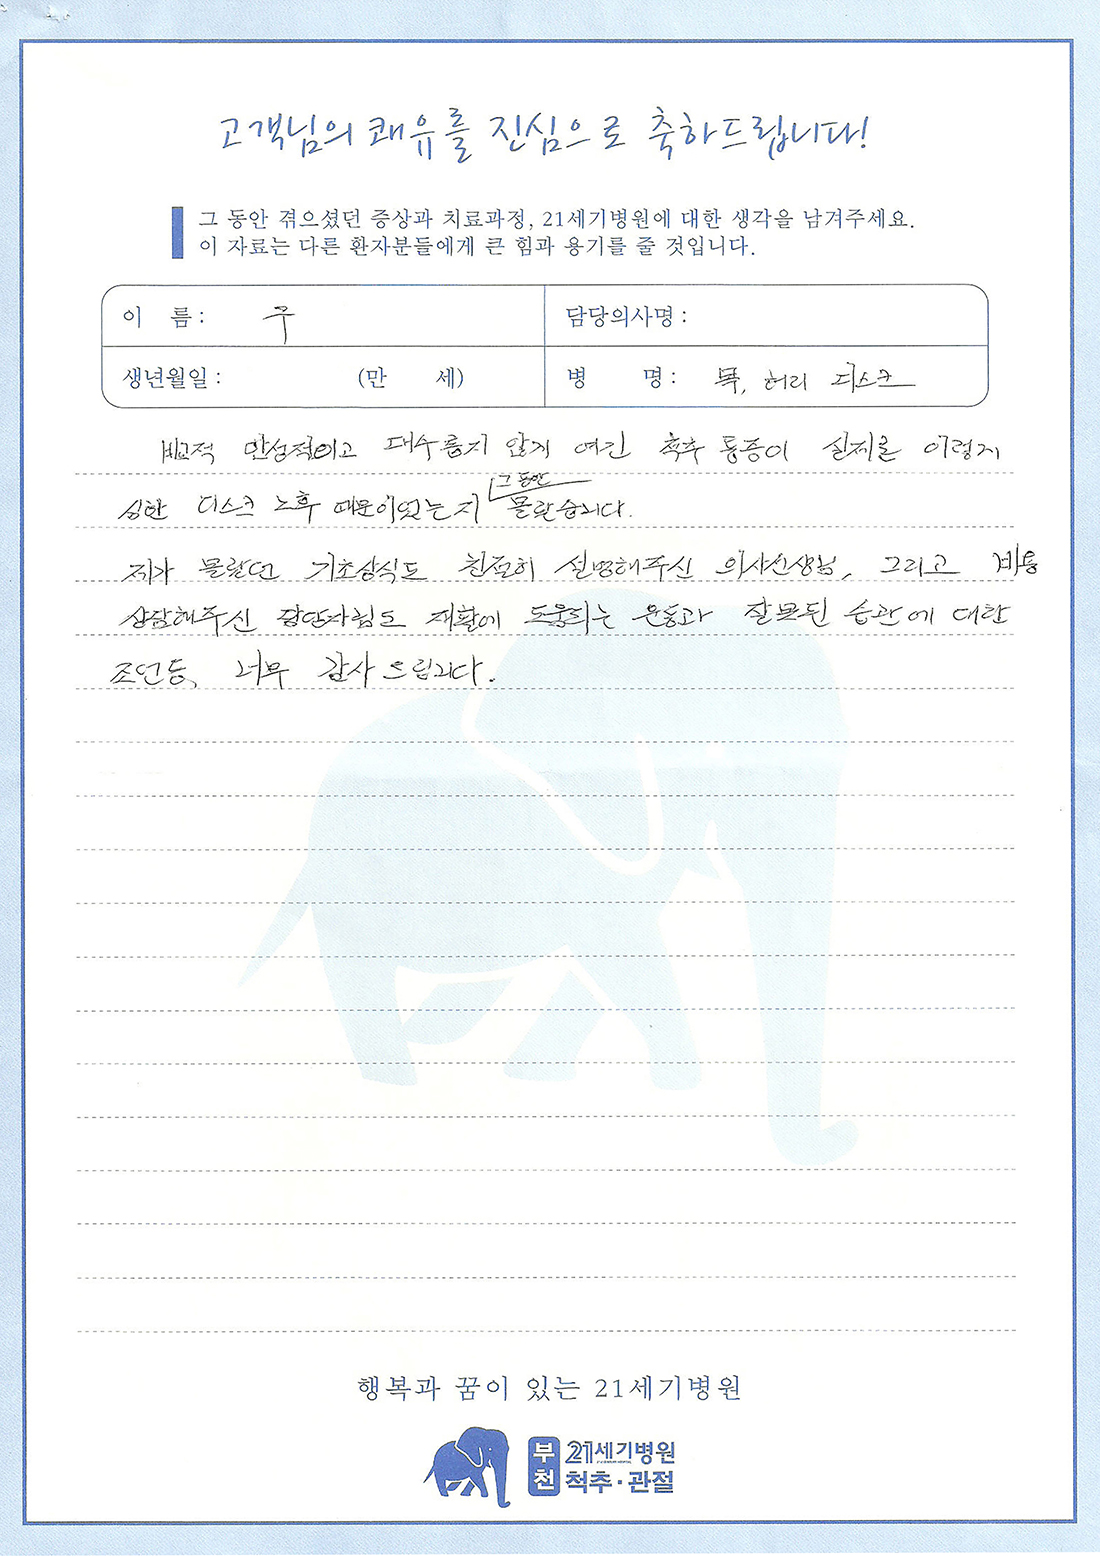 고객님의 쾌유를 진심으로 축하드립니다!
그 동안 겪으셨던 증상과 치료과정, 21세기병원에 대한 생각을 남겨주세요.
이 자료는 다른 환자분들에게 큰 힘과 용기를 줄 것입니다.
이 름 : 우 담당의사명 :
생년월일 : (만 세) 병 명 : 목, 허리 디스크
비교적 만성적이고 대수롭지 않게 여긴 척추 통증이 실제로 이렇게
심한 디스크 노후 때문이었는지 그동안 몰랐습니다.
제가 몰랐던 기초상식도 친절히 설명해주신 의사선생님, 그리고 비용
상담해주신 담당자님도 재활에 도움되는 운동과 잘못된 습관에 대한
조언등, 너무 감사드립니다.
행복과 꿈이 있는 21세기병원
부천 21세기병원
척추·관절